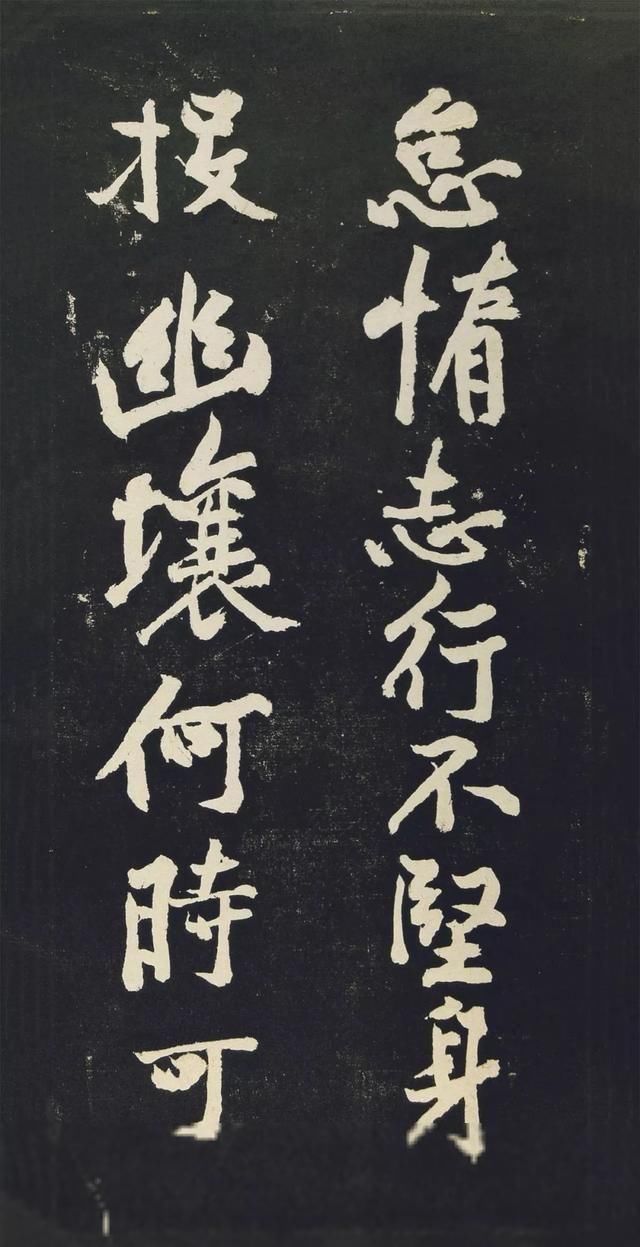 怠惰志行不堅身
投幽壤何時可